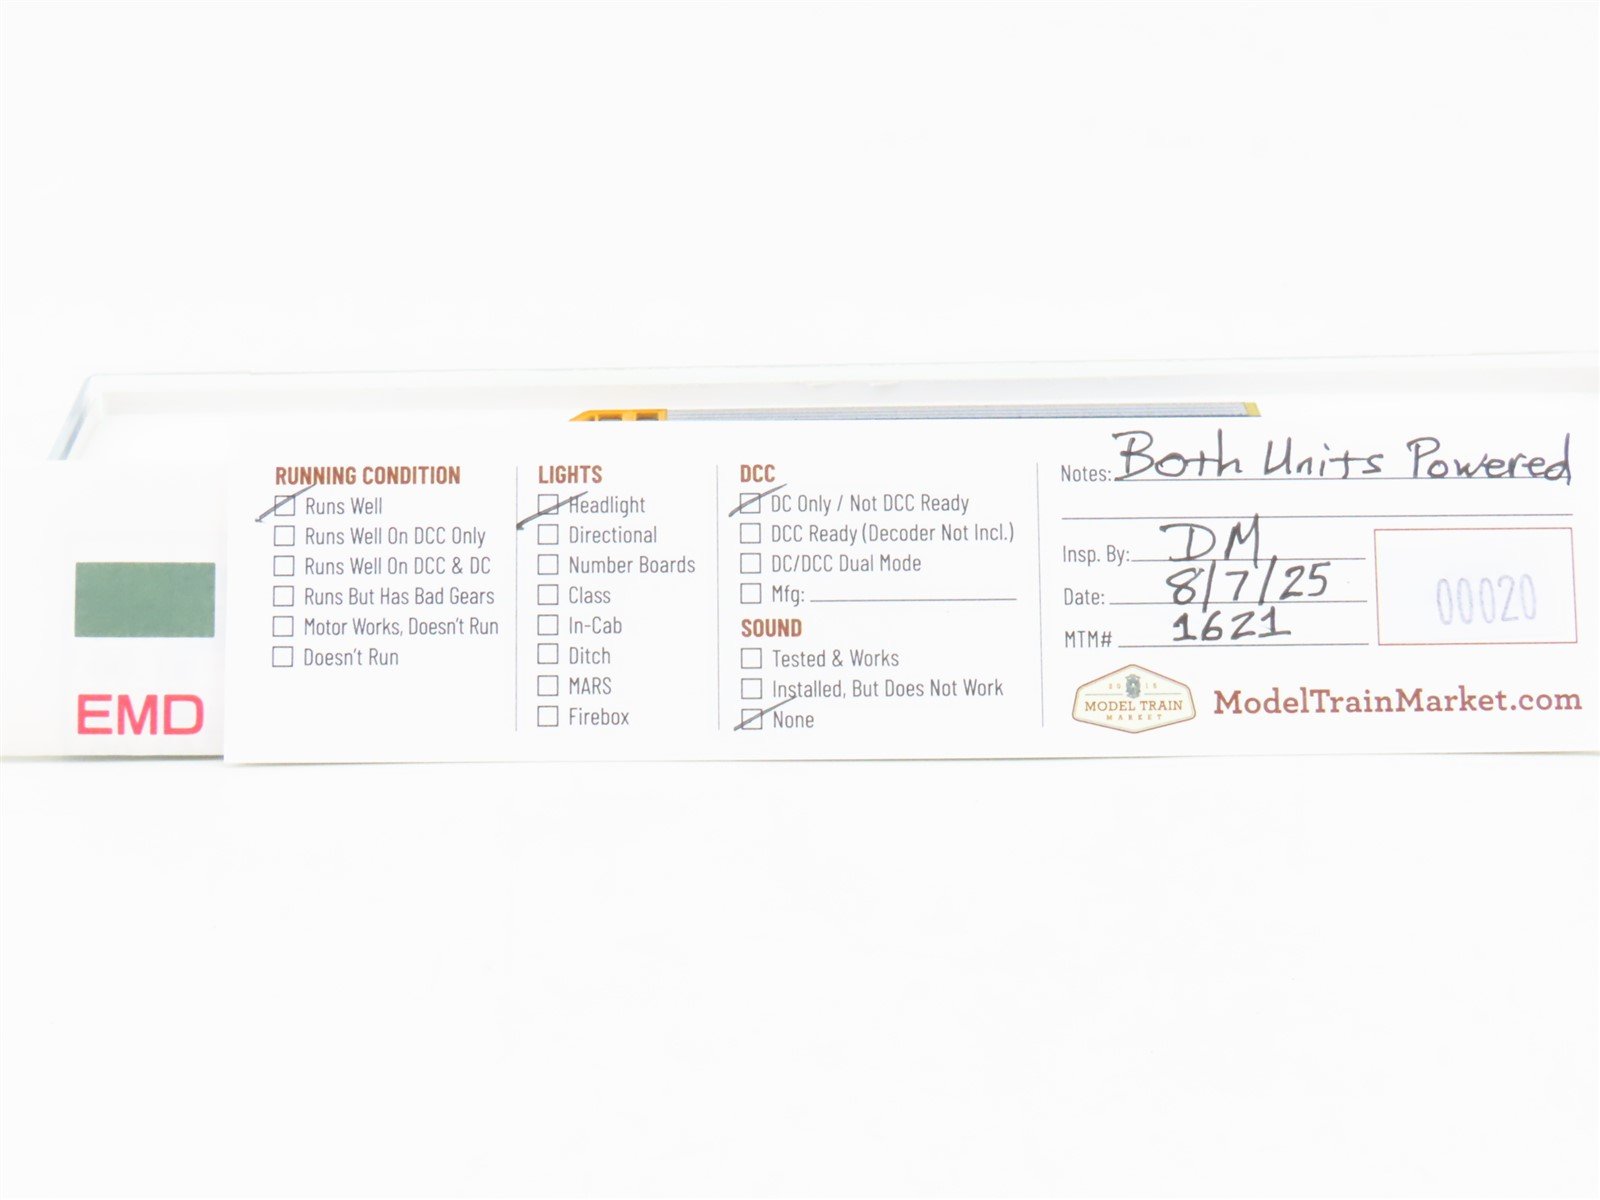 EMD
RUNNING CONDITION
Runs Well
Runs Well On DCC Only
Runs Well On DCC & DC
Runs But Has Bad Gears
Motor Works, Doesn't Run
Doesn't Run
LIGHTS
Headlight
Directional
Number Boards
Class
In-Cab
Ditch
MARS
Firebox
DCC
DC Only / Not DCC Ready
DCC Ready (Decoder Not Incl.)
DC/DCC Dual Mode
Mfg:
SOUND
Tested & Works
Installed, But Does Not Work
None
Notes: Both Units Powered
Insp. By: DM
Date: 8/7/25
MTM# 1621
00020
2015
MODEL TRAIN
MARKET
ModelTrainMarket.com